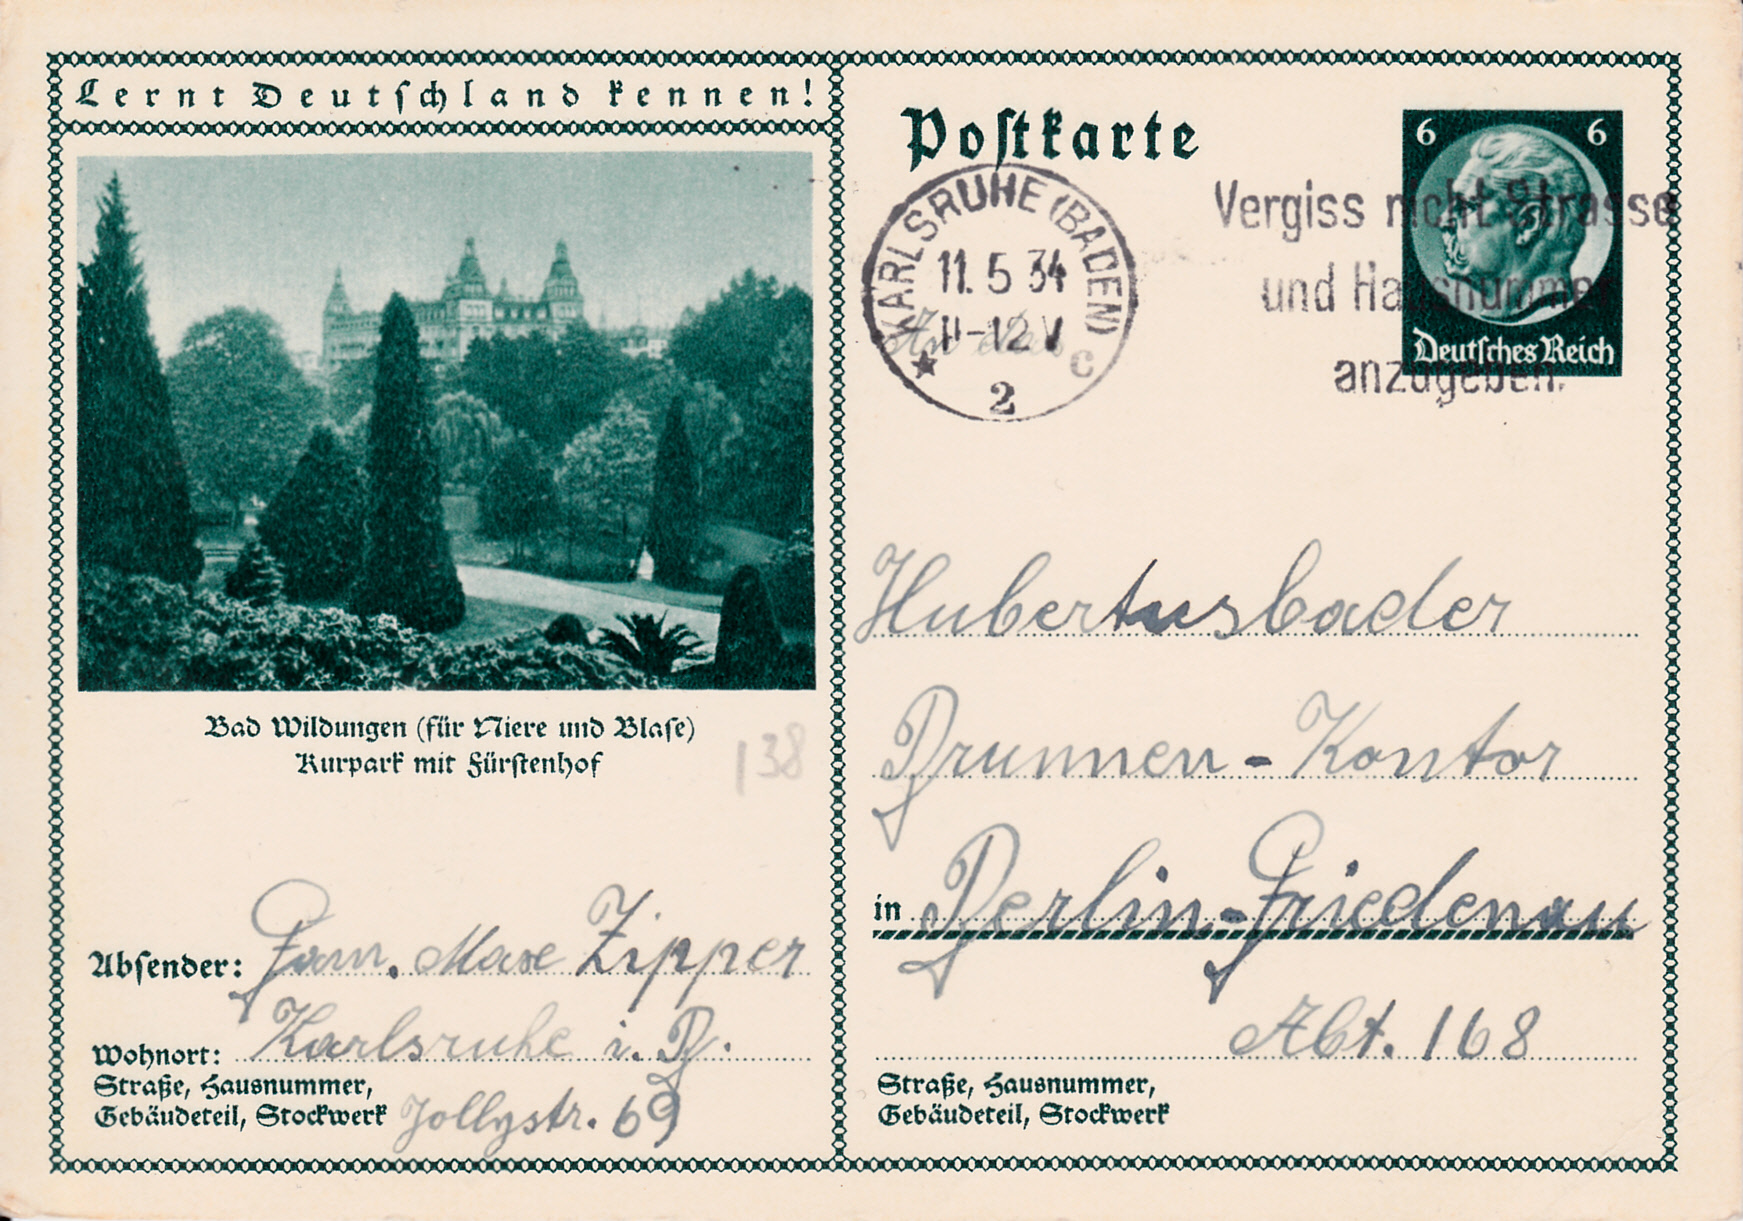 Lernt Deutschland kennen!
Bad Wildungen (für Niere und Blase)
Kurpark mit Fürstenhof
138
Absender: Fam. Max Zipper
Wohnort: Karlsruhe i. B.
Straße, Hausnummer,
Gebäudeteil, Stockwerk Jollystr. 69
Postkarte
6 6
Deutsches Reich
KARLSRUHE (BADEN)
11.5 34
11-12 V
★ 2 c
Vergiss nicht Strasse
und Hausnummer
anzugeben.
An das
Hubertusbader
Brunnen-Kontor
in Berlin-Friedenau
Abt. 168
Straße, Hausnummer,
Gebäudeteil, Stockwerk